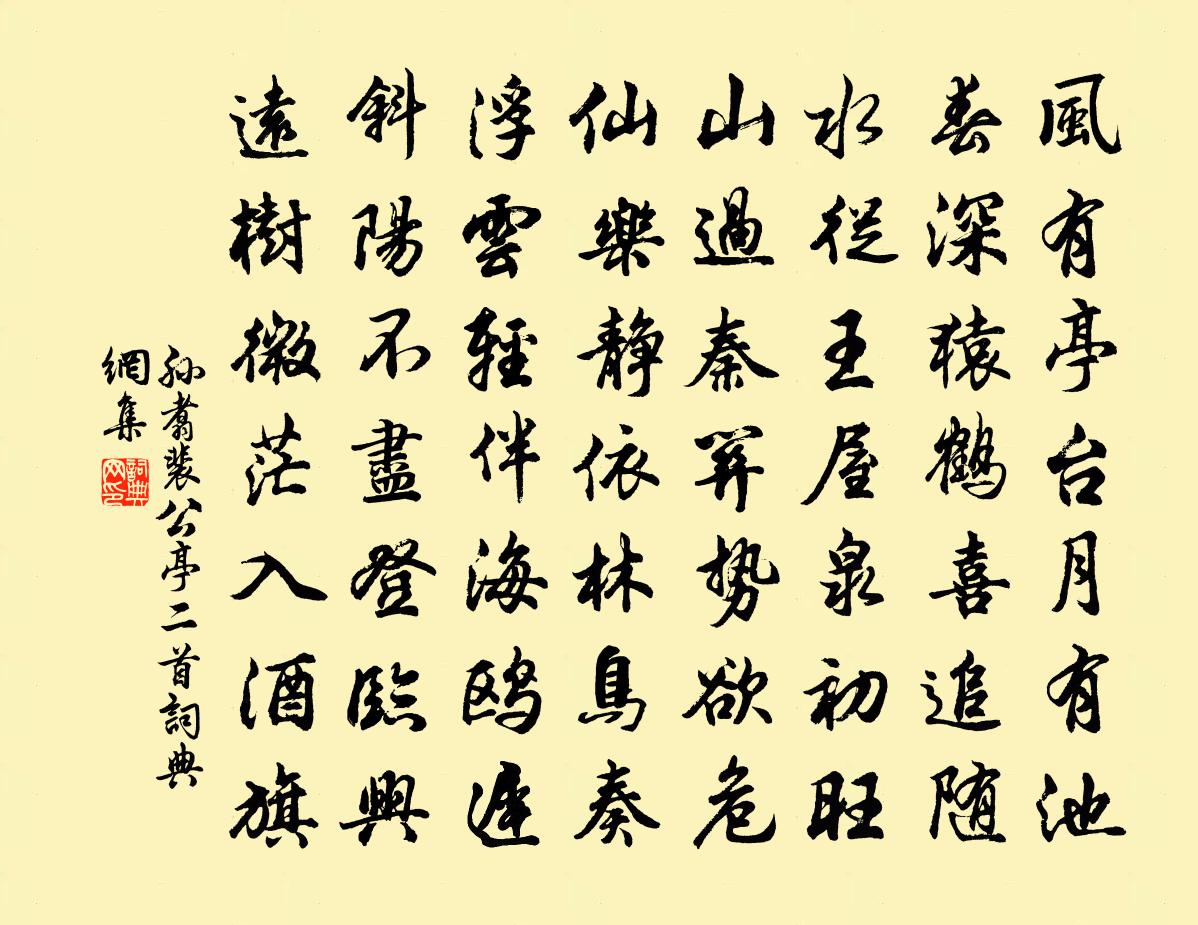 風有亭台月有池
春深猿鶴喜追随
水從王屋泉初旺
山過秦關勢欲危
仙樂靜依林鳥奏
浮雲輕伴海鷗遲
斜陽不盡登臨興
遠樹微茫入酒旗
孫翥裴公亭二首詞典
網集
詞典
网印